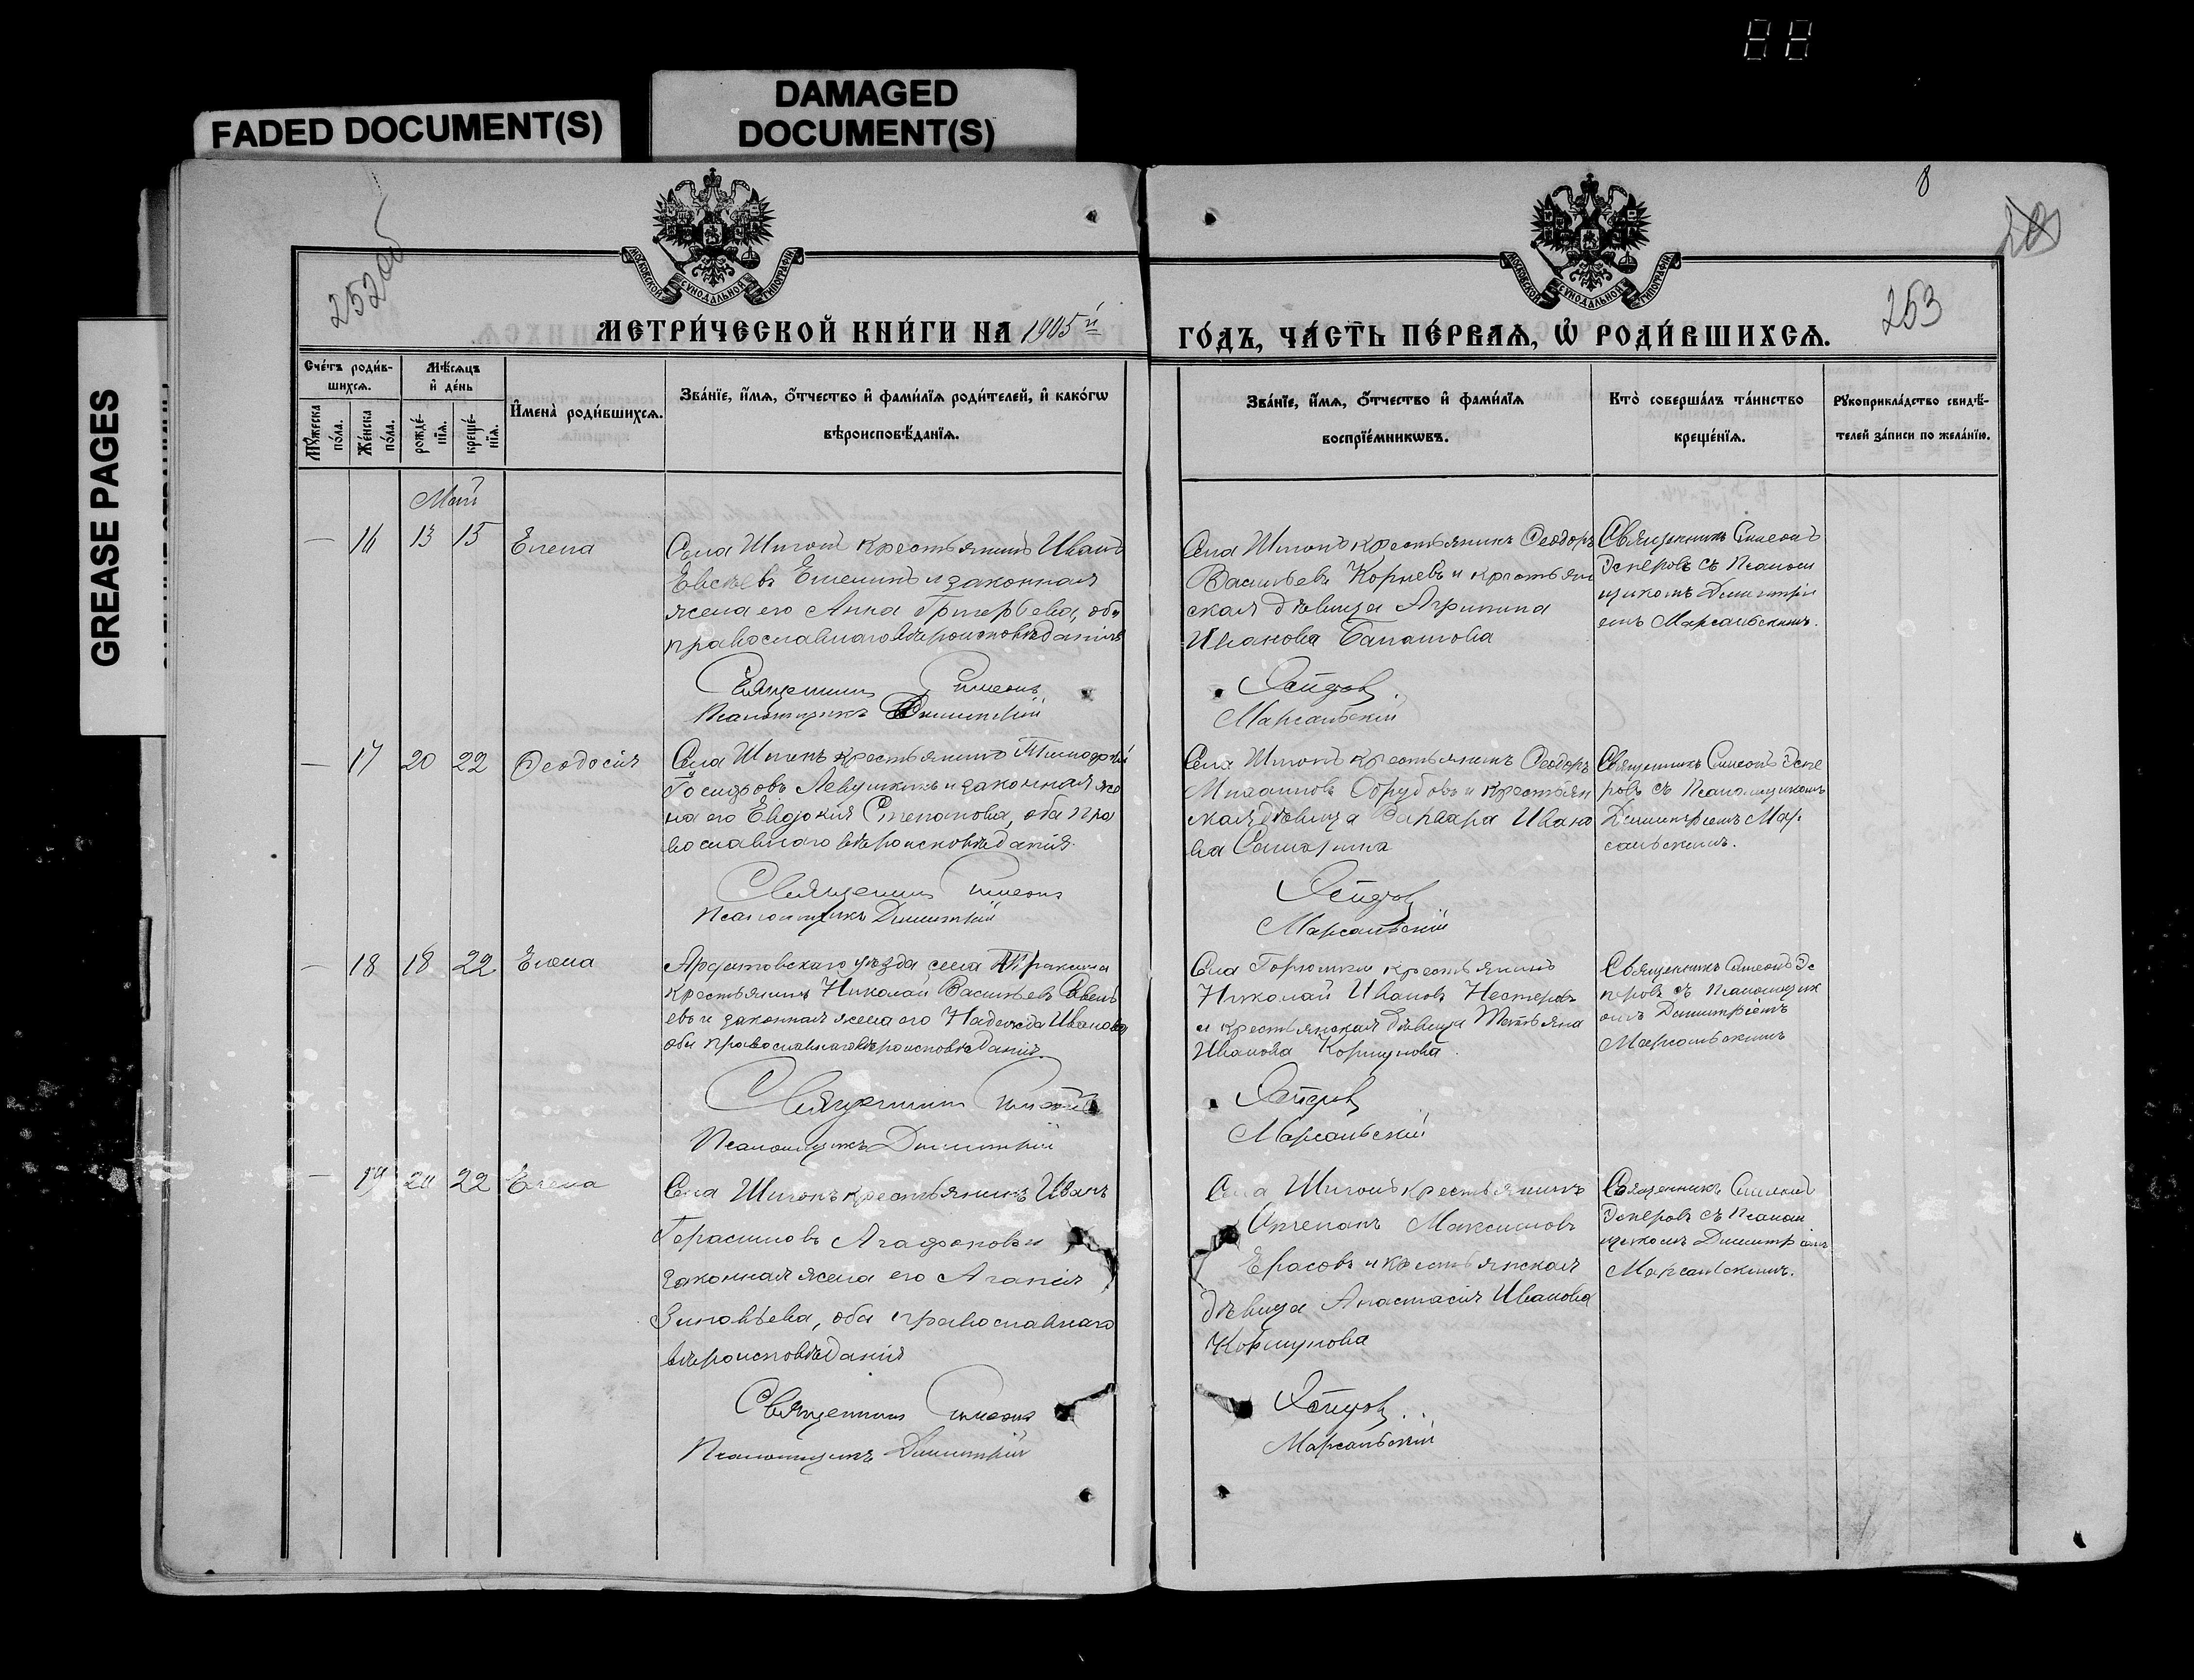 FADED DOCUMENT(S)
DAMAGED
DOCUMENT(S)
GREASE PAGES
252 об
8
253
МОСКОВСКОЙ СѴНОДАЛЬНОЙ ТИПОГРАФІИ
МОСКОВСКОЙ СѴНОДАЛЬНОЙ ТИПОГРАФІИ
МЕТРИ́ЧЕСКОЙ КНИ́ГИ НА 1905й
ГО́ДЪ, ЧА́СТЬ ПЕ́РВАѦ, Ѿ РОДИ́ВШИХСѦ.
Сче́тъ роди́в-
шихсѧ.
Мꙋ́жеска
по́ла.
Же́нска
по́ла.
Мѣ́сѧцъ
и҆ де́нь
рожде́-
нїѧ.
креще́-
нїѧ.
И҆мена̀ роди́вшихсѧ.
Зва́нїе, и҆́мѧ, ѻ҆́тчество и҆ фами́лїѧ роди́телей, и҆ како́гѡ
вѣроисповѣ́данїѧ.
Зва́нїе, и҆́мѧ, ѻ҆́тчество и҆ фами́лїѧ
воспрїе́мникѡвъ.
Кто̀ соверша́лъ та́инство
креще́нїѧ.
Рꙋкоприкла́дство свидѣ́-
телей за́писи по жела́нїю.
Май
— 16 13 15 Елена
Села Шигонъ крестьянинъ Иванъ
Евсѣевъ Ельшинъ и законная
жена его Анна Григорьева, оба
православнаго вѣроисповѣданія
Священникъ Симеонъ
Псаломщикъ Димитрій
Села Шигонъ крестьянинъ Ѳеодоръ
Васильевъ Корневъ и крестьян
ская дѣвица Агрипина
Иванова Балашова
Эсперовъ
Марсальскій
Священникъ Симеонъ
Эсперовъ съ Псалом
щикомъ Димитрі
емъ Марсальскимъ.
— 17 20 22 Ѳеодосія
Села Шигонъ крестьянинъ Тимоѳей
Іосифовъ Левушкинъ и законная же
на его Евдокія Степанова, оба пра
вославнаго вѣроисповѣданія
Священникъ Симеонъ
Псаломщикъ Димитрій
Села Шигонъ крестьянинъ Ѳеодоръ
Михаиловъ Обрубовъ и крестьян
ская дѣвица Варвара Ивано
ва Самарина
Эсперовъ
Марсальскій
Священникъ Симеонъ Эспе
ровъ съ Псаломщикомъ
Димитріемъ Мар
сальскимъ.
— 18 18 22 Елена
Ардатовскаго уѣзда села
крестьянинъ Николай Васильевъ Савель
евъ и законная жена его Надежда Иванова
оба православнаго вѣроисповѣданія.
Священникъ Симеонъ
Псаломщикъ Димитрій
Села Горюшки крестьянинъ
Николай Ивановъ Нестеровъ
и крестьянская дѣвица Татьяна
Иванова Коршунова.
Эсперовъ
Марсальскій
Священникъ Симеонъ Эс
перовъ съ Псаломщик
омъ Димитріемъ
Марсальскимъ
— 19 20 22 Елена
Села Шигонъ крестьянинъ Иванъ
Герасимовъ Агафоновъ и
законная жена его Агапія
Зиновьева, оба православнаго
вѣроисповѣданія
Священникъ Симеонъ
Псаломщикъ Димитрій
Села Шигонъ крестьянинъ
Степанъ Максимовъ
Ерасовъ и крестьянская
дѣвица Анастасія Иванова
Коршунова
Эсперовъ
Марсальскій
Священникъ Симеонъ
Эсперовъ съ Псалом
щикомъ Димитріемъ
Марсальскимъ.